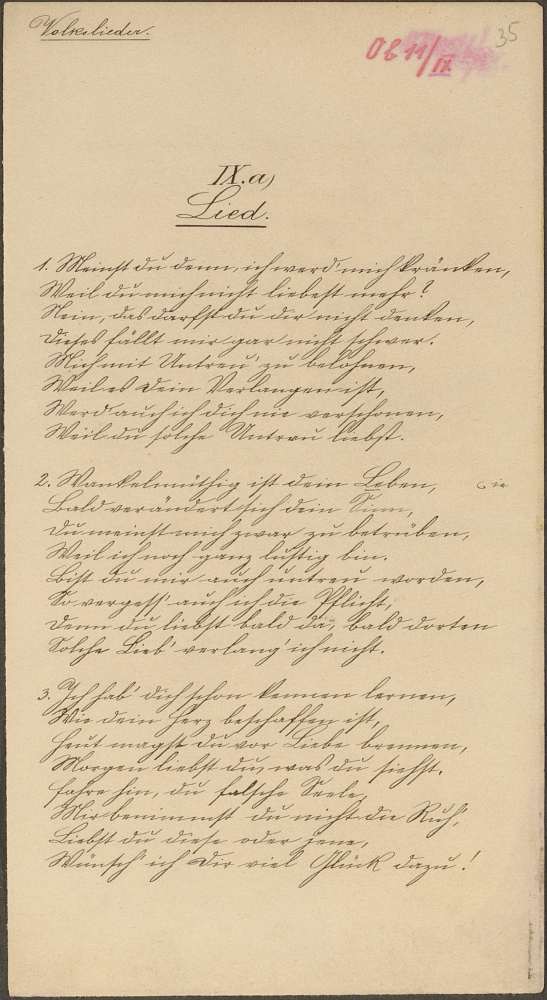 Volkslieder.
35
Ob 11/IX
IX.a)
Lied.
1. Meinst du denn, ich werd' mich kränken,
Weil du mich nicht liebest mehr?
Nein, das darfst du dir nicht denken,
Dieses fällt mir gar nicht schwer.
Mich mit Untreu' zu belohnen,
Weil es Dein Verlangen ist,
Werd auch ich dich nie verschonen,
Weil du solche Untreu liebst.
2. Wankelmüthig ist dein Leben,
ie
Bald verändert sich dein Sinn,
Du meinst mich zwar zu betrüben,
Weil ich noch ganz lustig bin.
Bist du mir auch untreu worden,
So vergess' auch ich die Pflicht,
Denn du liebst bald da, bald dorten
Solche Lieb' verlang' ich nicht.
3. Ich hab' dich schon kennen lernen,
Wie dein Herz beschaffen ist,
Heut magst du vor Liebe brennen,
Morgen liebst du, was du siehst.
Fahre hin, du falsche Seele,
Mir benimmst du nicht die Ruh',
Liebst du diese oder jene,
Wünsch' ich Dir viel Glück dazu!